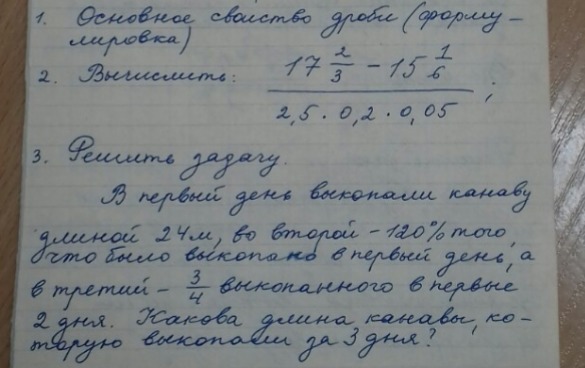 1. Основное свойство дроби (форму-
лировка)
2. Вычислить: (17 2/3 - 15 1/6) / (2,5 · 0,2 · 0,05) ;
3. Решить задачу.
В первый день выкопали канаву
длиной 24 м, во второй - 120% того,
что было выкопано в первый день, а
в третий - 3/4 выкопанного в первые
2 дня. Какова длина канавы, ко-
торую выкопали за 3 дня?